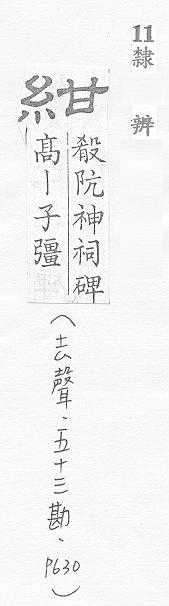 11隸辨
紺
殽阬神祠碑
高丨子彊
（去聲．五十三勘．P630）